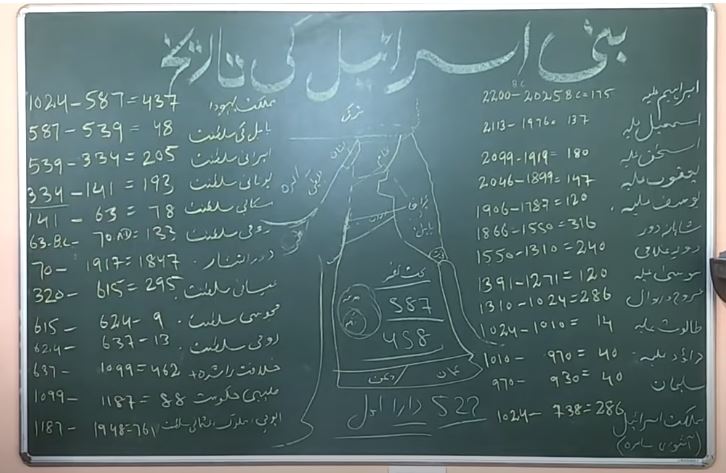 بنی اسرائیل کی تاریخ
ابراہیم علیہ 2200-2025 BC=175
اسمعیل علیہ 2113-1976= 137
اسحٰق علیہ 2099-1919= 180
یعقوب علیہ 2046-1899= 147
یوسف علیہ 1906-1787= 120
شاہانہ دور 1866-1550= 316
دور غلامی 1550-1310 = 240
موسیٰ علیہ 1391-1271 = 120
عروج و زوال 1310-1024=286
طالوت علیہ 1024-1010 = 14
داؤد علیہ 1010- 970 = 40
سلیمان 970- 930 = 40
مملکت اسرائیل 1024- 738=286
(آشوری سامرہ)
مملکت یہودا 1024-587=437
بابل کی سلطنت 587-539= 48
ایرانی سلطنت 539-334= 205
یونانی سلطنت 334-141 = 193
مکابی سلطنت 141 - 63 = 78
رومی سلطنت 63-BC- 70AD= 133
دور انتشار 70- 1917=1847
عیسائی سلطنت 320- 615=295
مجوسی سلطنت 615- 624-9
رومی سلطنت 624- 637-13
خلافت راشدہ 637- 1099=462
صلیبی حکومت 1099- 1187= 88
ایوبی، مملوک، عثمانی سلطنت 1187- 1948=761
ترکی
شام
عراق
بابل
بخت نصر
587
458
یمن
عمان
522 دارا اول